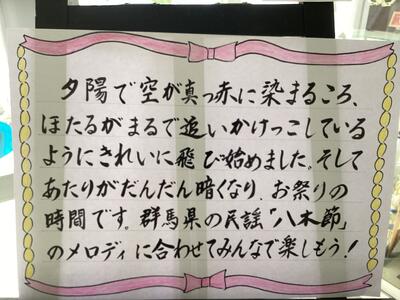 夕陽で空が真っ赤に染まるころ、
ほたるがまるで追いかけっこしている
ようにきれいに飛び始めました。そして
あたりがだんだん暗くなり、お祭りの
時間です。群馬県の民謡「八木節」
のメロディに合わせてみんなで楽しもう!